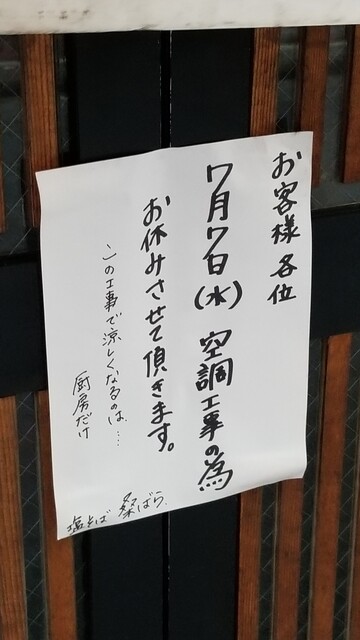 お客様各位
7月7日(水)空調工事の為
お休みさせて頂きます。
この工事で涼しくなるのは…
厨房だけ
塩そば 粲ばら